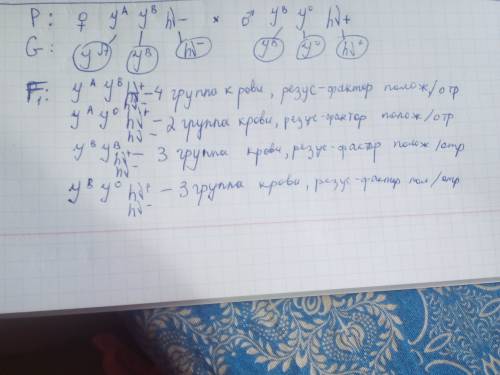 P: ♀ y^A y^B hν- × ♂ y^B y^0 hν+
G: y^A y^B hν- y^B y^0 hν+
F₁: y^A y^B hν+ hν- - 4 группа крови, резус-фактор полож/отр
y^A y^0 hν+ hν- - 2 группа крови, резус-фактор полож/отр
y^B y^B hν+ hν- - 3 группа крови, резус-фактор полож/отр
y^B y^0 hν+ hν- - 3 группа крови, резус-фактор пол/отр